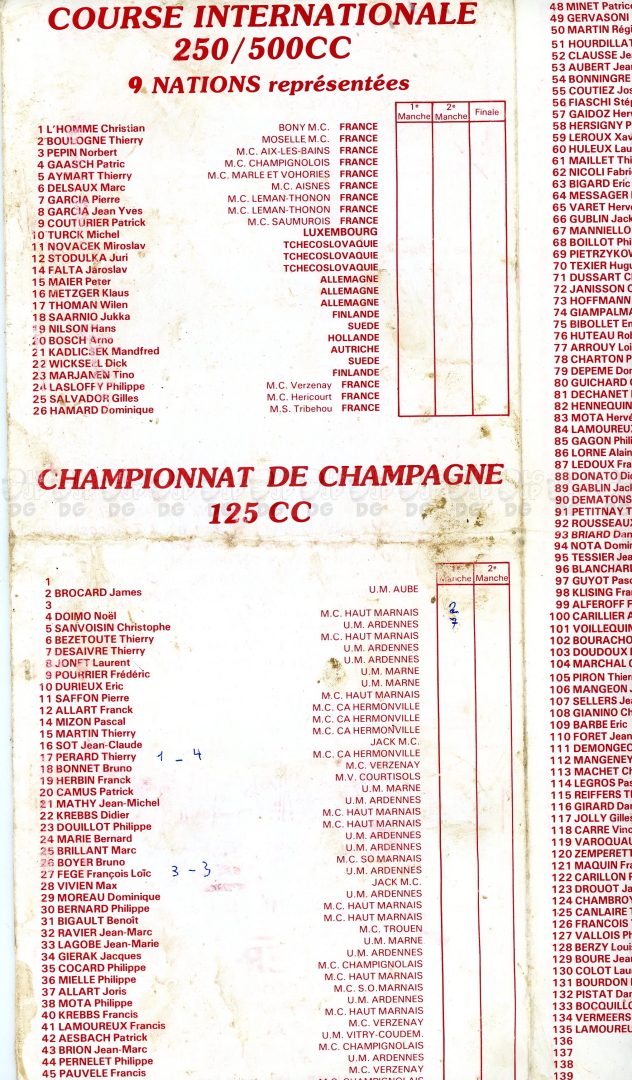 COURSE INTERNATIONALE
250/500CC
9 NATIONS représentées
1e Manche 2e Manche Finale
1 L'HOMME Christian BONY M.C. FRANCE
2 BOULOGNE Thierry MOSELLE M.C. FRANCE
3 PEPIN Norbert M.C. AIX-LES-BAINS FRANCE
4 GAASCH Patric M.C. CHAMPIGNOLOIS FRANCE
5 AYMART Thierry M.C. MARLE ET VOHORIES FRANCE
6 DELSAUX Marc M.C. AISNES FRANCE
7 GARCIA Pierre M.C. LEMAN-THONON FRANCE
8 GARCIA Jean Yves M.C. LEMAN-THONON FRANCE
9 COUTURIER Patrick M.C. SAUMUROIS FRANCE
10 TURCK Michel LUXEMBOURG
11 NOVACEK Miroslav TCHECOSLOVAQUIE
12 STODULKA Juri TCHECOSLOVAQUIE
14 FALTA Jaroslav TCHECOSLOVAQUIE
15 MAIER Peter ALLEMAGNE
16 METZGER Klaus ALLEMAGNE
17 THOMAN Wilen ALLEMAGNE
18 SAARNIO Jukka FINLANDE
19 NILSON Hans SUEDE
20 BOSCH Arno HOLLANDE
21 KADLICSEK Mandfred AUTRICHE
22 WICKSELL Dick SUEDE
23 MARJANEN Tino FINLANDE
24 LASLOFFY Philippe M.C. Verzenay FRANCE
25 SALVADOR Gilles M.C. Hericourt FRANCE
26 HAMARD Dominique M.S. Tribehou FRANCE
CHAMPIONNAT DE CHAMPAGNE
125 CC
1e Manche 2e Manche
1
2 BROCARD James U.M. AUBE
3
4 DOIMO Noël M.C. HAUT MARNAIS 2
5 SANVOISIN Christophe U.M. ARDENNES 7
6 BEZETOUTE Thierry M.C. HAUT MARNAIS
7 DESAIVRE Thierry U.M. ARDENNES
8 JONET Laurent U.M. ARDENNES
9 POURRIER Frédéric U.M. MARNE
10 DURIEUX Eric U.M. MARNE
11 SAFFON Pierre M.C. HAUT MARNAIS
12 ALLART Franck M.C. CA HERMONVILLE
14 MIZON Pascal M.C. CA HERMONVILLE
15 MARTIN Thierry M.C. CA HERMONVILLE
16 SOT Jean-Claude JACK M.C.
17 PERARD Thierry 1 - 4 M.C. CA HERMONVILLE
18 BONNET Bruno M.C. VERZENAY
19 HERBIN Franck M.V. COURTISOLS
20 CAMUS Patrick U.M. MARNE
21 MATHY Jean-Michel U.M. ARDENNES
22 KREBBS Didier M.C. HAUT MARNAIS
23 DOUILLOT Philippe M.C. HAUT MARNAIS
24 MARIE Bernard U.M. ARDENNES
25 BRILLANT Marc U.M. ARDENNES
26 BOYER Bruno M.C. SO MARNAIS
27 FEGE François Loïc 3 - 3 U.M. ARDENNES
28 VIVIEN Max JACK M.C.
29 MOREAU Dominique U.M. ARDENNES
30 BERNARD Philippe M.C. HAUT MARNAIS
31 BIGAULT Benoît M.C. HAUT MARNAIS
32 RAVIER Jean-Marc M.C. TROUEN
33 LAGOBE Jean-Marie U.M. MARNE
34 GIERAK Jacques U.M. ARDENNES
35 COCARD Philippe M.C. CHAMPIGNOLAIS
36 MIELLE Philippe M.C. HAUT MARNAIS
37 ALLART Joris M.C. S.O.MARNAIS
38 MOTA Philippe U.M. ARDENNES
40 KREBBS Francis M.C. HAUT MARNAIS
41 LAMOUREUX Francis M.C. VERZENAY
42 AESBACH Patrick U.M. VITRY-COUDEM.
43 BRION Jean-Marc M.C. CHAMPIGNOLAIS
44 PERNELET Philippe U.M. ARDENNES
45 PAUVELE Francis M.C. VERZENAY
48 MINET Patrice
49 GERVASONI
50 MARTIN Régi
51 HOURDILLAT
52 CLAUSSE Je
53 AUBERT Jea
54 BONNINGRE
55 COUTIEZ Jos
56 FIASCHI Sté
57 GAIDOZ Her
58 HERSIGNY P
59 LEROUX Xav
60 HULEUX Lau
61 MAILLET Thi
62 NICOLI Fabri
63 BIGARD Eric
64 MESSAGER
65 VARET Herv
66 GUBLIN Jack
67 MANNIELLO
68 BOILLOT Phi
69 PIETRZYKOW
70 TEXIER Hugu
71 DUSSART C
72 JANISSON C
73 HOFFMANN
74 GIAMPALMA
75 BIBOLLET En
76 HUTEAU Rob
77 ARROUY Loi
78 CHARTON P
79 DEPEME Dor
80 GUICHARD
81 DECHANET
82 HENNEQUIN
83 MOTA Hervé
84 LAMOUREUX
85 GAGON Phili
86 LORNE Alain
87 LEDOUX Fra
88 DONATO Did
89 GABLIN Jack
90 DEMATONS
91 PETITNAY T
92 ROUSSEAUX
93 BRIARD Dan
94 NOTA Domin
95 TESSIER Jea
96 BLANCHARD
97 GUYOT Pasc
98 KLISING Fran
99 ALFEROFF F
100 CARILLIER A
101 VOILLEQUIN
102 BOURACHO
103 DOUDOUX
104 MARCHAL
105 PIRON Thier
106 MANGEON
107 SELLERS Jea
108 GIANINO Ch
109 BARBE Eric
110 FORET Jean
111 DEMONGEO
112 MANGENEY
113 MACHET Ch
114 LEGROS Pas
115 REIFFERS Th
116 GIRARD Dan
117 JOLLY Gilles
118 CARRE Vinc
119 VAROQUAU
120 ZEMPERETT
121 MAQUIN Fra
122 CARILLON P
123 DROUOT Ja
124 CHAMBROY
125 CANLAIRE T
126 FRANCOIS
127 VALLOIS Ph
128 BERZY Louis
129 BOURE Jean
130 COLOT Lau
131 BOURDON
132 PISTAT Dan
133 BOCQUILLO
134 VERMEERS
135 LAMOUREU
136
137
138
139